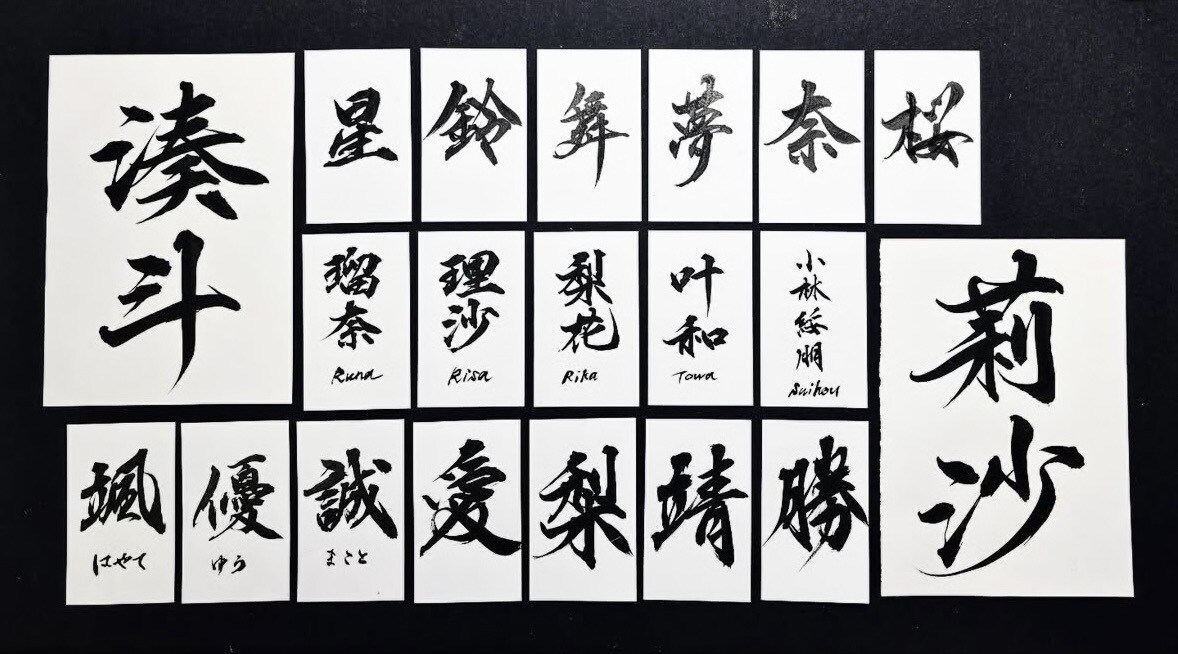 湊斗
星
鈴
舞
夢
奈
桜
瑠奈
Runa
理沙
Risa
梨花
Rika
叶和
Towa
小林綏朋
Suihou
莉沙
颯
はやて
優
ゆう
誠
まこと
愛
梨
靖
勝